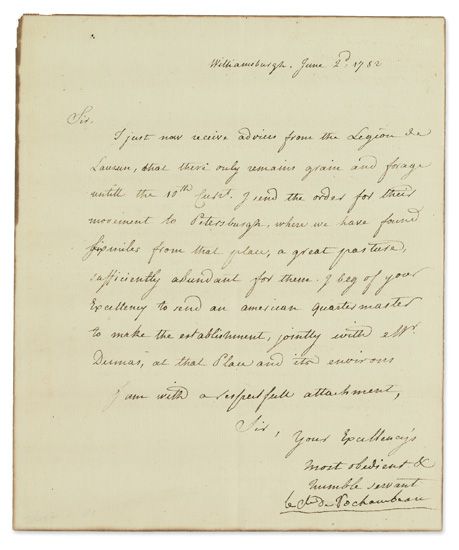 Williamsburgh. June 2d. 1782
Sir.
I just now receive advices from the Legion de
Lauzun, that there only remains grain and forage
untill the 10th Curst. I send the order for their
movement to Petersburgh, where we have found
six miles from that place, a great pasture,
sufficiently abundant for them. I beg of your
Excellency to send an american quartermaster
to make the establishment, jointly with Mr
Dumas, at that Place and its environs
I am with a respectfull attachment,
Sir,
Your Excellency's
most obedient &
humble servant
le Cte de Rochambeau